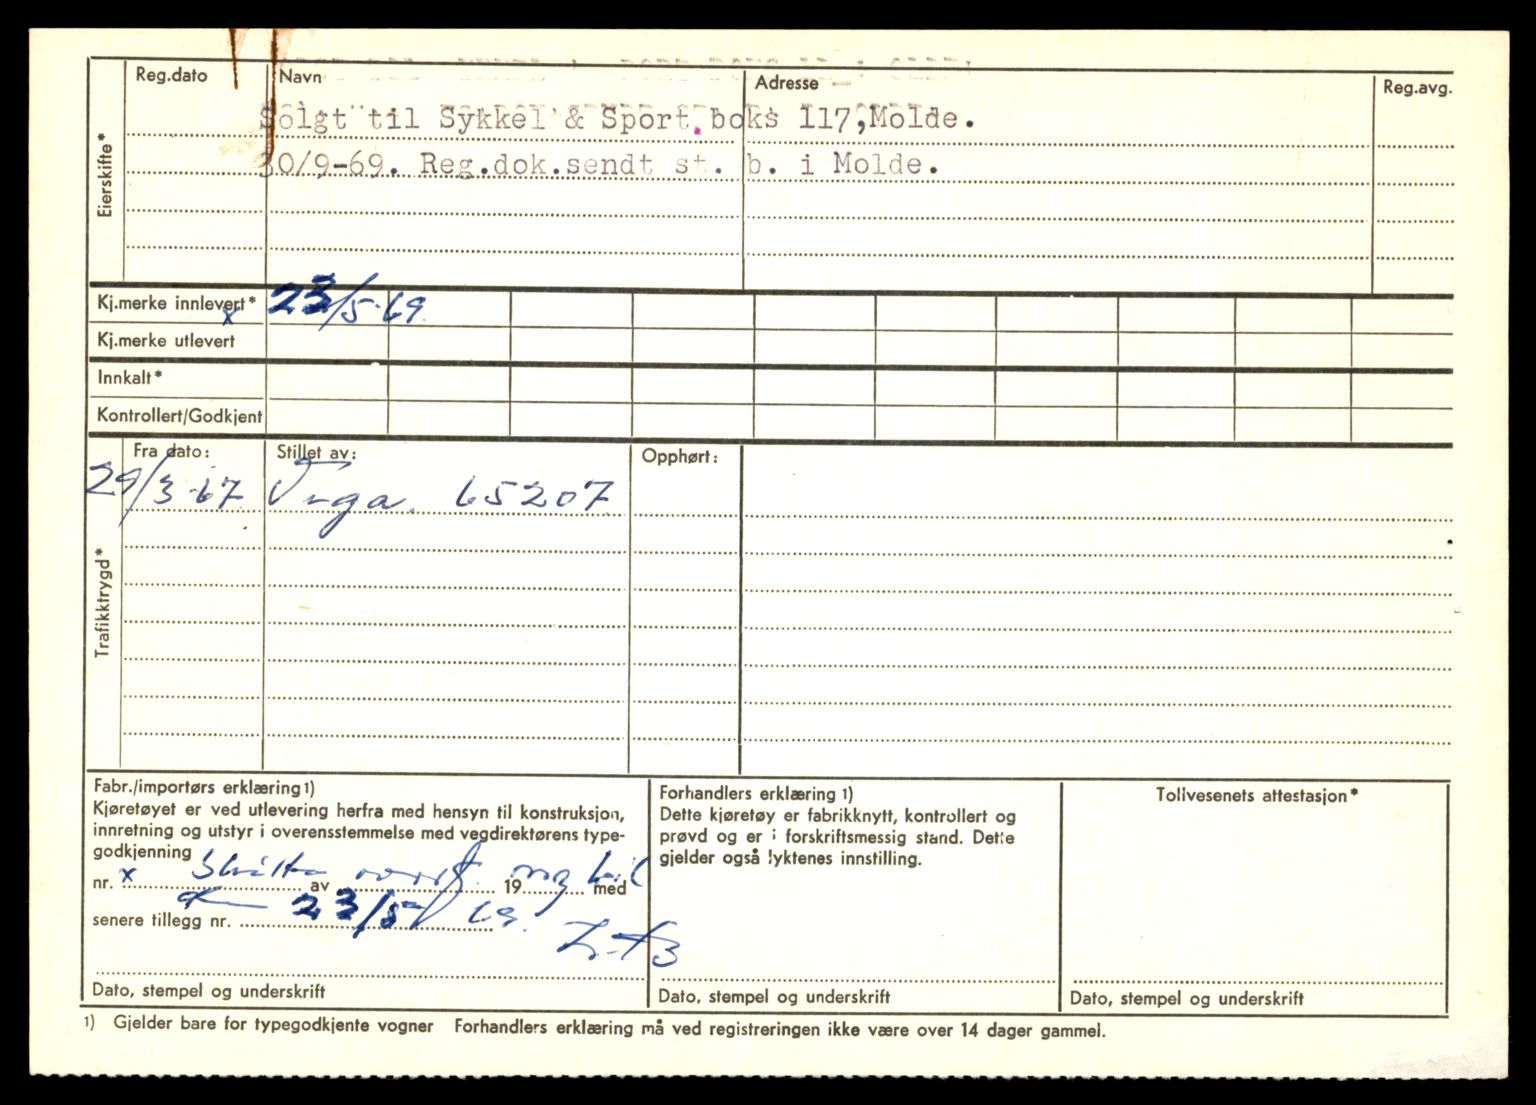 Reg.dato Navn Adresse Reg.avg.
Solgt til Sykkel & Sport, boks 117, Molde.
30/9-69. Reg.dok.sendt st. b. i Molde.
Eierskifte*
Kj.merke innlevert* 23/5-69.
x
Kj.merke utlevert
Innkalt*
Kontrollert/Godkjent
Fra dato: Stillet av: Opphørt:
29/3-67 65207
Trafikktrygd*
Fabr./importørs erklæring 1)
Kjøretøyet er ved utlevering herfra med hensyn til konstruksjon,
innretning og utstyr i overensstemmelse med vegdirektørens type-
godkjenning
nr. x av 19 med
senere tillegg nr. 23/5 69.
Dato, stempel og underskrift
Forhandlers erklæring 1)
Dette kjøretøy er fabrikknytt, kontrollert og
prøvd og er i forskriftsmessig stand. Dette
gjelder også lyktenes innstilling.
Dato, stempel og underskrift
Tollvesenets attestasjon*
Dato, stempel og underskrift
1) Gjelder bare for typegodkjente vogner Forhandlers erklæring må ved registreringen ikke være over 14 dager gammel.